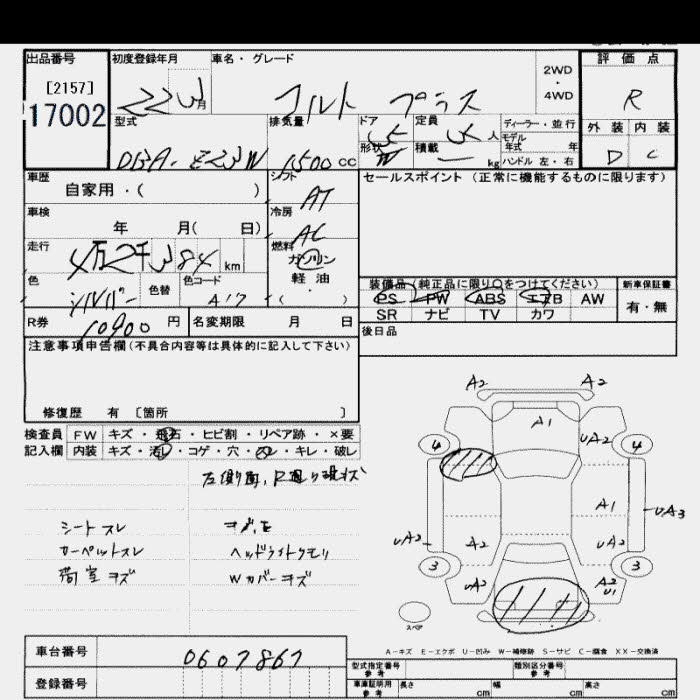 出品番号 初度登録年月 車名・グレード 評価点
[2157] 2WD
・
4WD
17002 22 3月 コルト プラス R
型式 排気量 ドア 定員 人 ディーラー・並行 外装 内装
形状 積載 kg モデル年式 年
DBA-Z23W 1500cc 5 W 5 ー ハンドル 左・右 D C
車歴 シフト セールスポイント(正常に機能するものに限ります)
自家用・( ) AT
車検 冷房
年 月( 日) AC
走行 燃料
4万2千384km ガソリン
色 色替 色コード 軽油
シルバー A17 ・( ) 装備品(純正品に限り○をつけてください) 新車保証書
PS PW ABS エアB AW 有・無
R券 10900円 名変期限 月 日 SR ナビ TV カワ
注意事項申告欄(不具合内容等は具体的に記入して下さい) 後日品
修復歴 有 〔箇所 〕
検査員 FW キズ・飛石・ヒビ割・リペア跡・×要
記入欄 内装 キズ・汚れ・コゲ・穴・スレ・キレ・破レ
左側面、R廻り現状
シートスレ キズ、凹
カーペットスレ ヘッドライトクモリ
荷室キズ Wカバーキズ
A2 A2
A1
4 UA2 4
A1 UA3
UA2 A2 UA2
3 3
UA2 A2
U1
スペア
A-キズ E-エクボ U-凹み W-補修跡 S-サビ C-腐食 XX-交換済
車台番号 0607867 型式指定番号 参考 類別区分番号 参考
登録番号 車庫証明用 参考 長さ cm 幅 cm 高さ cm